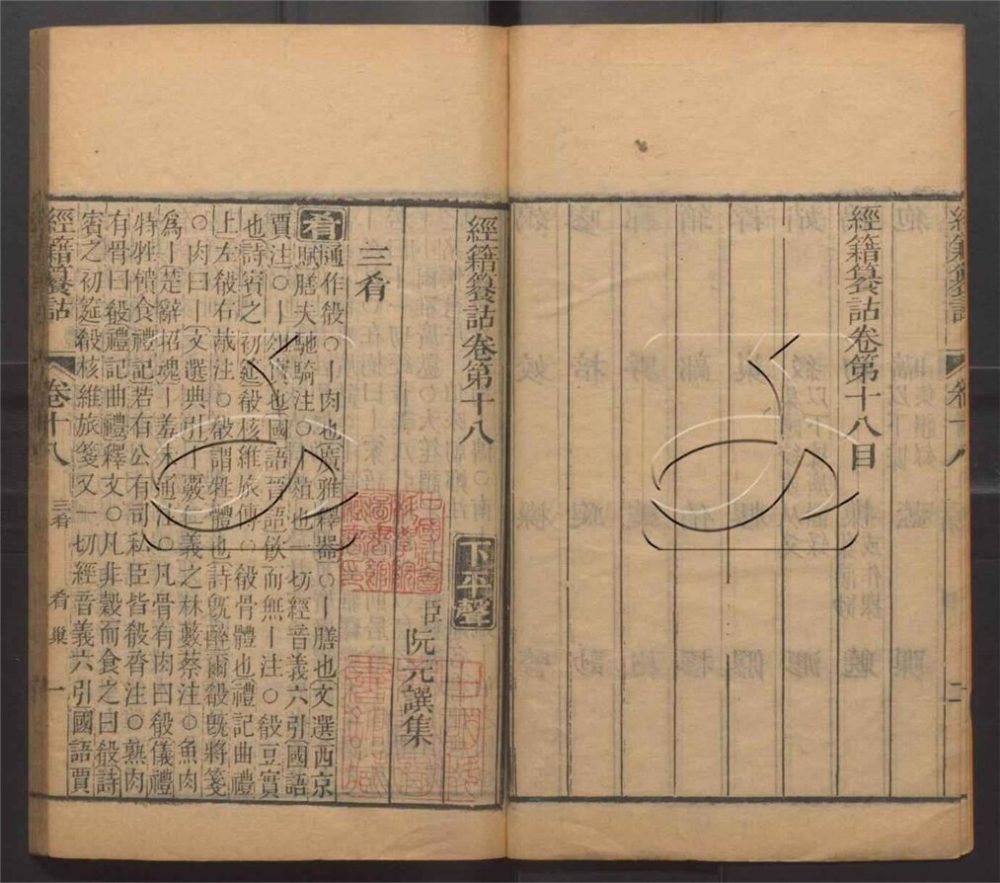 經籍籑詁卷第十八目
經籍籑詁卷第十八
下平聲
臣阮元譔集
三肴
肴通作殽○丨肉也廣雅釋器○丨膳也文選西京
賦膳夫馳騎注○丨葅也一切經音義六引國語
賈注○丨俎實也國語晉語飲而無丨注○殽豆實
也詩賓之初筵殽核維旅傳○殽骨體也禮記曲禮
上左殽右胾注○殽謂牲體也詩旣醉爾殽旣將箋
○肉曰丨文選典引丨覈仁義之林藪蔡注○魚肉
爲丨楚辭招魂丨羞未通注○凡骨有肉曰殽儀禮
特牲饋食禮記若有公有司私臣皆殽脀注○熟肉
有骨曰殽禮記曲禮釋文○凡非穀而食之曰殽詩
賓之初筵殽核維旅箋又一切經音義六引國語賈
經籍籑詁
卷十八
三肴
肴
巢
一